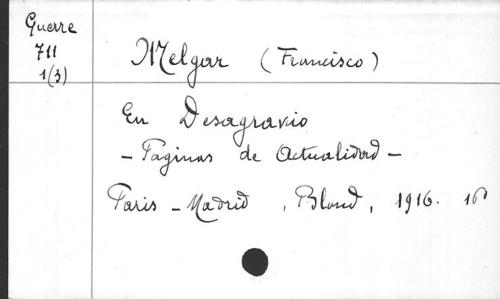 Guerre
711
1(3)
Melgar (Francisco)
En Desagravio
- Paginas de Actualidad -
Paris - Madrid, Bloud, 1916. 16º